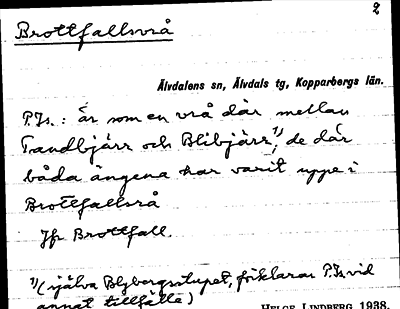 2
Brottfallsvrå
Älvdalens sn, Älvdals tg, Kopparbergs län.
P.Js.: är som en vrå där mellan
Tandbjärr och Blibjärr,¹⁾ de där
båda ängena har varit uppe i
Brottfallsvrå
Jfr Brottfall.
¹⁾ (själva Blybergsstupet, förklarar P.Js vid
annat tillfälle)
HELGE LINDBERG 1938.